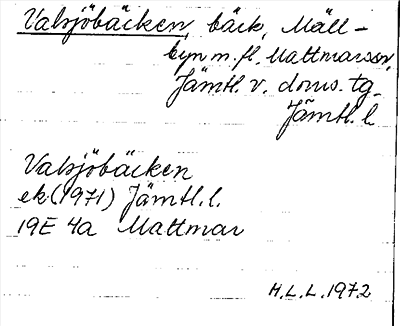 Valsjöbäcken, bäck, Mäll-
byn m.fl. Mattmars sn,
Jämtl. v. doms. tg.
Jämtl. l.
Valsjöbäcken
ek. (1971) Jämtl. l.
19E 4a Mattmar
H.L.L. 1972